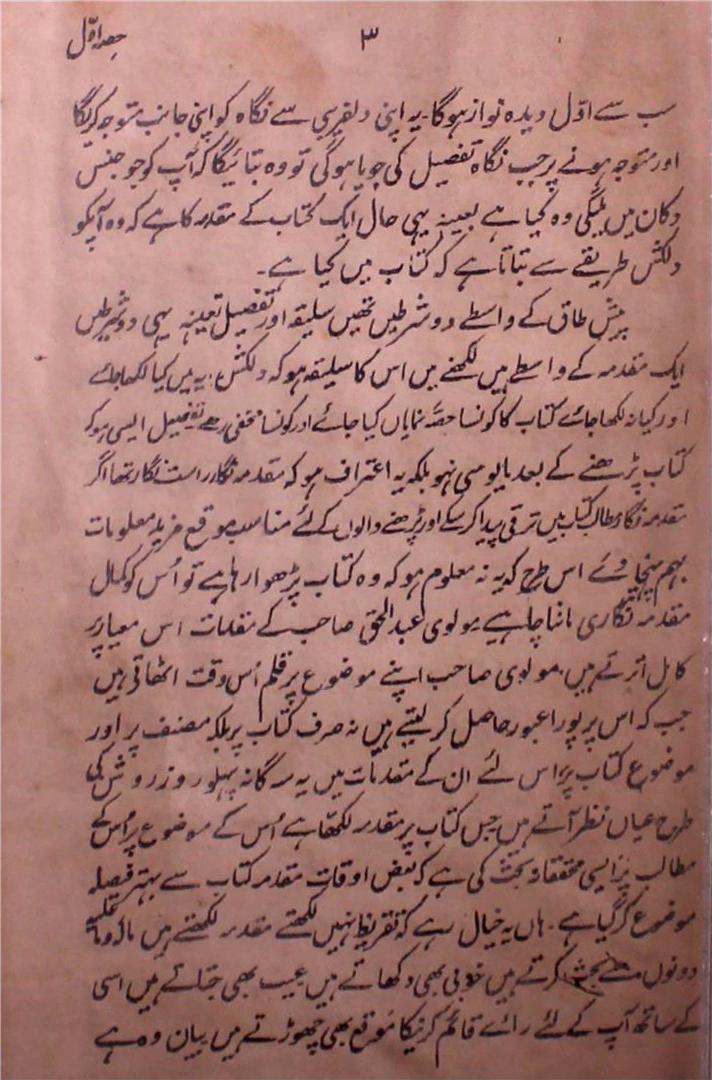 ۳
حصہ اوّل
سب سے اوّل دیدہ نواز ہوگا۔ یہ اپنی دلفریبی سے نگاہ کو اپنی جانب متوجہ کریگا
اور متوجہ ہونے پر جب نگاہ تفصیل کی جویا ہوگی تو وہ بتائیگا کہ آپ کو جو جنس
دکان میں ملیگی وہ کیا ہے بعینہٖ یہی حال ایک کتاب کے مقدمہ کا ہے کہ وہ آپکو
دلکش طریقے سے بتاتا ہے کہ کتاب میں کیا ہے۔
پیش طاق کے واسطے دو شرطیں تھیں سلیقہ اور تفصیل بعینہٖ یہی دو شرطیں
ایک مقدمہ کے واسطے ہیں لکھنے میں اس کا سلیقہ ہو کہ دلکش پیرایہ میں کیا لکھا جائے
اور کیا نہ لکھا جائے کتاب کا کونسا حصّہ نمایاں کیا جائے اور کونسا مخفی رہے تفصیل ایسی ہو کہ
کتاب پڑھنے کے بعد مایوسی نہو بلکہ یہ اعتراف ہو کہ مقدمہ نگار راست نگار تھا اگر
مقدمہ نگار مطالب کتاب میں ترقی پیدا کر سکے اور پڑھنے والوں کے لئے مناسب موقع مزید معلومات
بہم پہنچاوئے اس طرح کہ یہ نہ معلوم ہو کہ وہ کتاب پڑھوا رہا ہے تو اُس کو کمال
مقدمہ نگاری ماننا چاہیے مولوی عبدالحق صاحب کے مقدمات اس معیار پر
کامل اترتے ہیں۔ مولوی صاحب اپنے موضوع پر قلم اُس وقت اٹھاتے ہیں
جب کہ اس پر پورا عبور حاصل کر لیتے ہیں نہ صرف کتاب پر بلکہ مصنف پر اور
موضوع کتاب پر اس لئے ان کے مقدمات میں یہ سہ گانہ پہلو روز روشن کی
طرح عیاں نظر آتے ہیں جس کتاب پر مقدمہ لکھا ہے اُس کے موضوع پر اُس کے
مطالب پر ایسی محققانہ بحث کی ہے کہ بعض اوقات مقدمہ کتاب سے بہتر فیصلہ
موضوع کر گیا ہے۔ ہاں یہ خیال رہے کہ تقریظ نہیں لکھتے مقدمہ لکھتے ہیں ما لہ و ما علیہ
دونوں سے بحث کرتے ہیں خوبی بھی دکھاتے ہیں عیب بھی جتاتے ہیں اسی
کے ساتھ آپ کے لئے رائے قائم کرنیکا موقع بھی چھوڑتے ہیں بیان وہ ہے